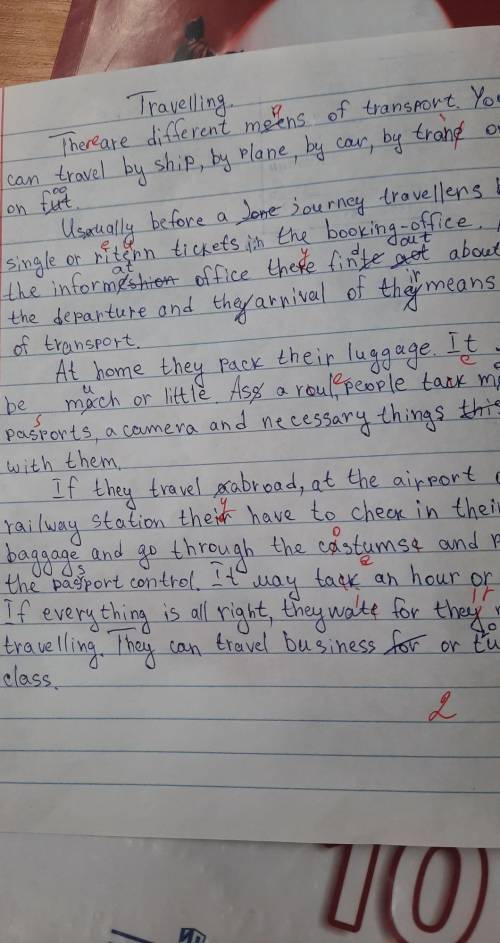 Travelling.
There are different means of transport. You
can travel by ship, by plane, by car, by train or
on foot.
Usually before a journey travellers b
single or return tickets in the booking-office.
the information office they find out about
the departure and the arrival of their means
of transport.
At home they pack their luggage. It
be much or little. As a roul, people take m
passports, a camera and necessary things
with them.
If they travel abroad, at the airport
railway station they have to check in their
baggage and go through the costums and p
the passport control. It may take an hour or
If everything is all right, they wait for their
travelling. They can travel business or
class.
2
10